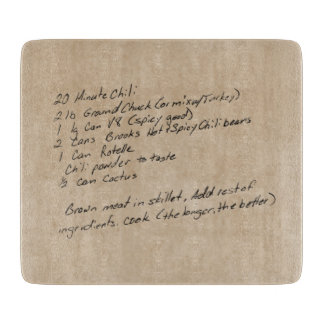 20 Minute Chili
2 lb Ground Chuck (or mix w/Turkey)
1 Lg Can V8 (spicy good)
2 Cans Brooks Hot & Spicy Chili beans
1 Can Rotelle
Chili powder to taste
½ can Cactus
Brown meat in skillet, Add rest of
ingredients. Cook (the longer, the better)